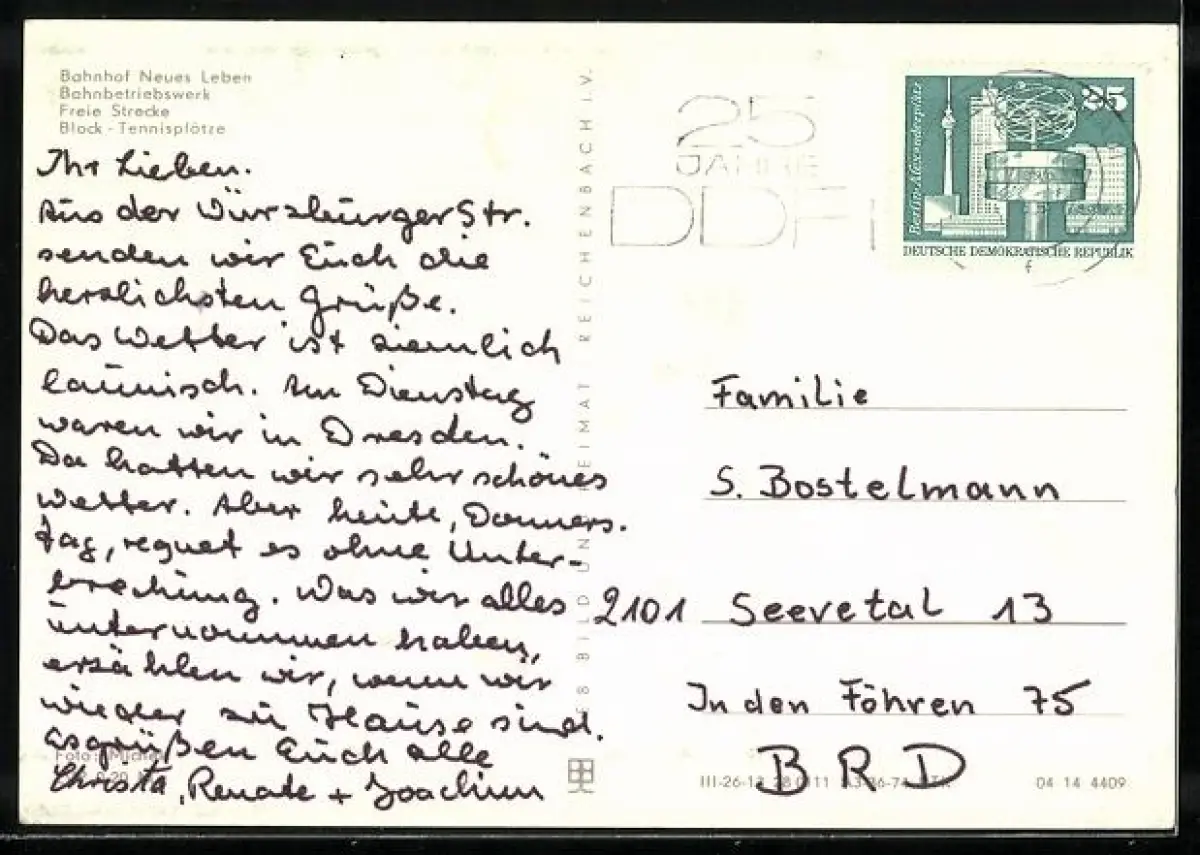 Bahnhof Neues Leben
Bahnbetriebswerk
Freie Strecke
Block - Tennisplätze
Ihr Lieben.
Aus der Würzburger Str.
senden wir Euch die
herzlichsten Grüße.
Das Wetter ist ziemlich
launisch. Am Dienstag
waren wir in Dresden.
Da hatten wir sehr schönes
Wetter. Aber heute, Donners-
tag, regnet es ohne Unter-
brechung. Was wir alles
unternommen haben,
erzählen wir, wenn wir
wieder zu Hause sind.
Es grüßen Euch alle
Christa, Renate + Joachim
Foto: Michel
BILD UND HEIMAT REICHENBACH I. V.
25
JAHRE
DDR
Berlin-Alexanderplatz
25
DEUTSCHE DEMOKRATISCHE REPUBLIK
f
Familie
S. Bostelmann
2101 Seevetal 13
In den Föhren 75
BRD
III-26-13
04 14 4409